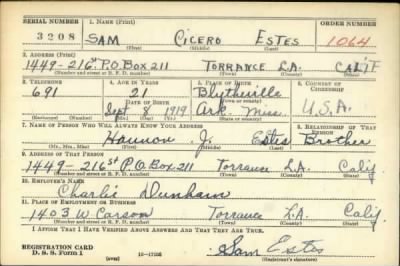 SERIAL NUMBER 1. NAME (Print) ORDER NUMBER
3208 SAM CICERO ESTES 1064
(First) (Middle) (Last)
2. ADDRESS (Print)
1449-216st P.O. Box 211 TORRANCE L.A. CALIF
(Number and street or R. F. D. number) (Town) (County) (State)
3. TELEPHONE 4. AGE IN YEARS 5. PLACE OF BIRTH 6. COUNTRY OF CITIZENSHIP
691 21 Blytheville
DATE OF BIRTH (Town or county)
Sept 8 1919 Ark. Miss. U.S.A.
(Mo.) (Day) (Yr.) (State or country)
7. NAME OF PERSON WHO WILL ALWAYS KNOW YOUR ADDRESS 8. RELATIONSHIP OF THAT PERSON
J. Estes Brother
(Mr., Mrs., Miss) (First) (Middle) (Last)
9. ADDRESS OF THAT PERSON
1449-216st P.O. Box 211 Torrance L.A. Calif
(Number and street or R. F. D. number) (Town) (County) (State)
10. EMPLOYER'S NAME
Charlie Dunham
11. PLACE OF EMPLOYMENT OR BUSINESS
1403 W Carson Torrance L.A. Calif.
(Number and street or R. F. D. number) (Town) (County) (State)
I AFFIRM THAT I HAVE VERIFIED ABOVE ANSWERS AND THAT THEY ARE TRUE.
REGISTRATION CARD
D. S. S. Form 1 (over) Sam Estes
(Registrant's signature)